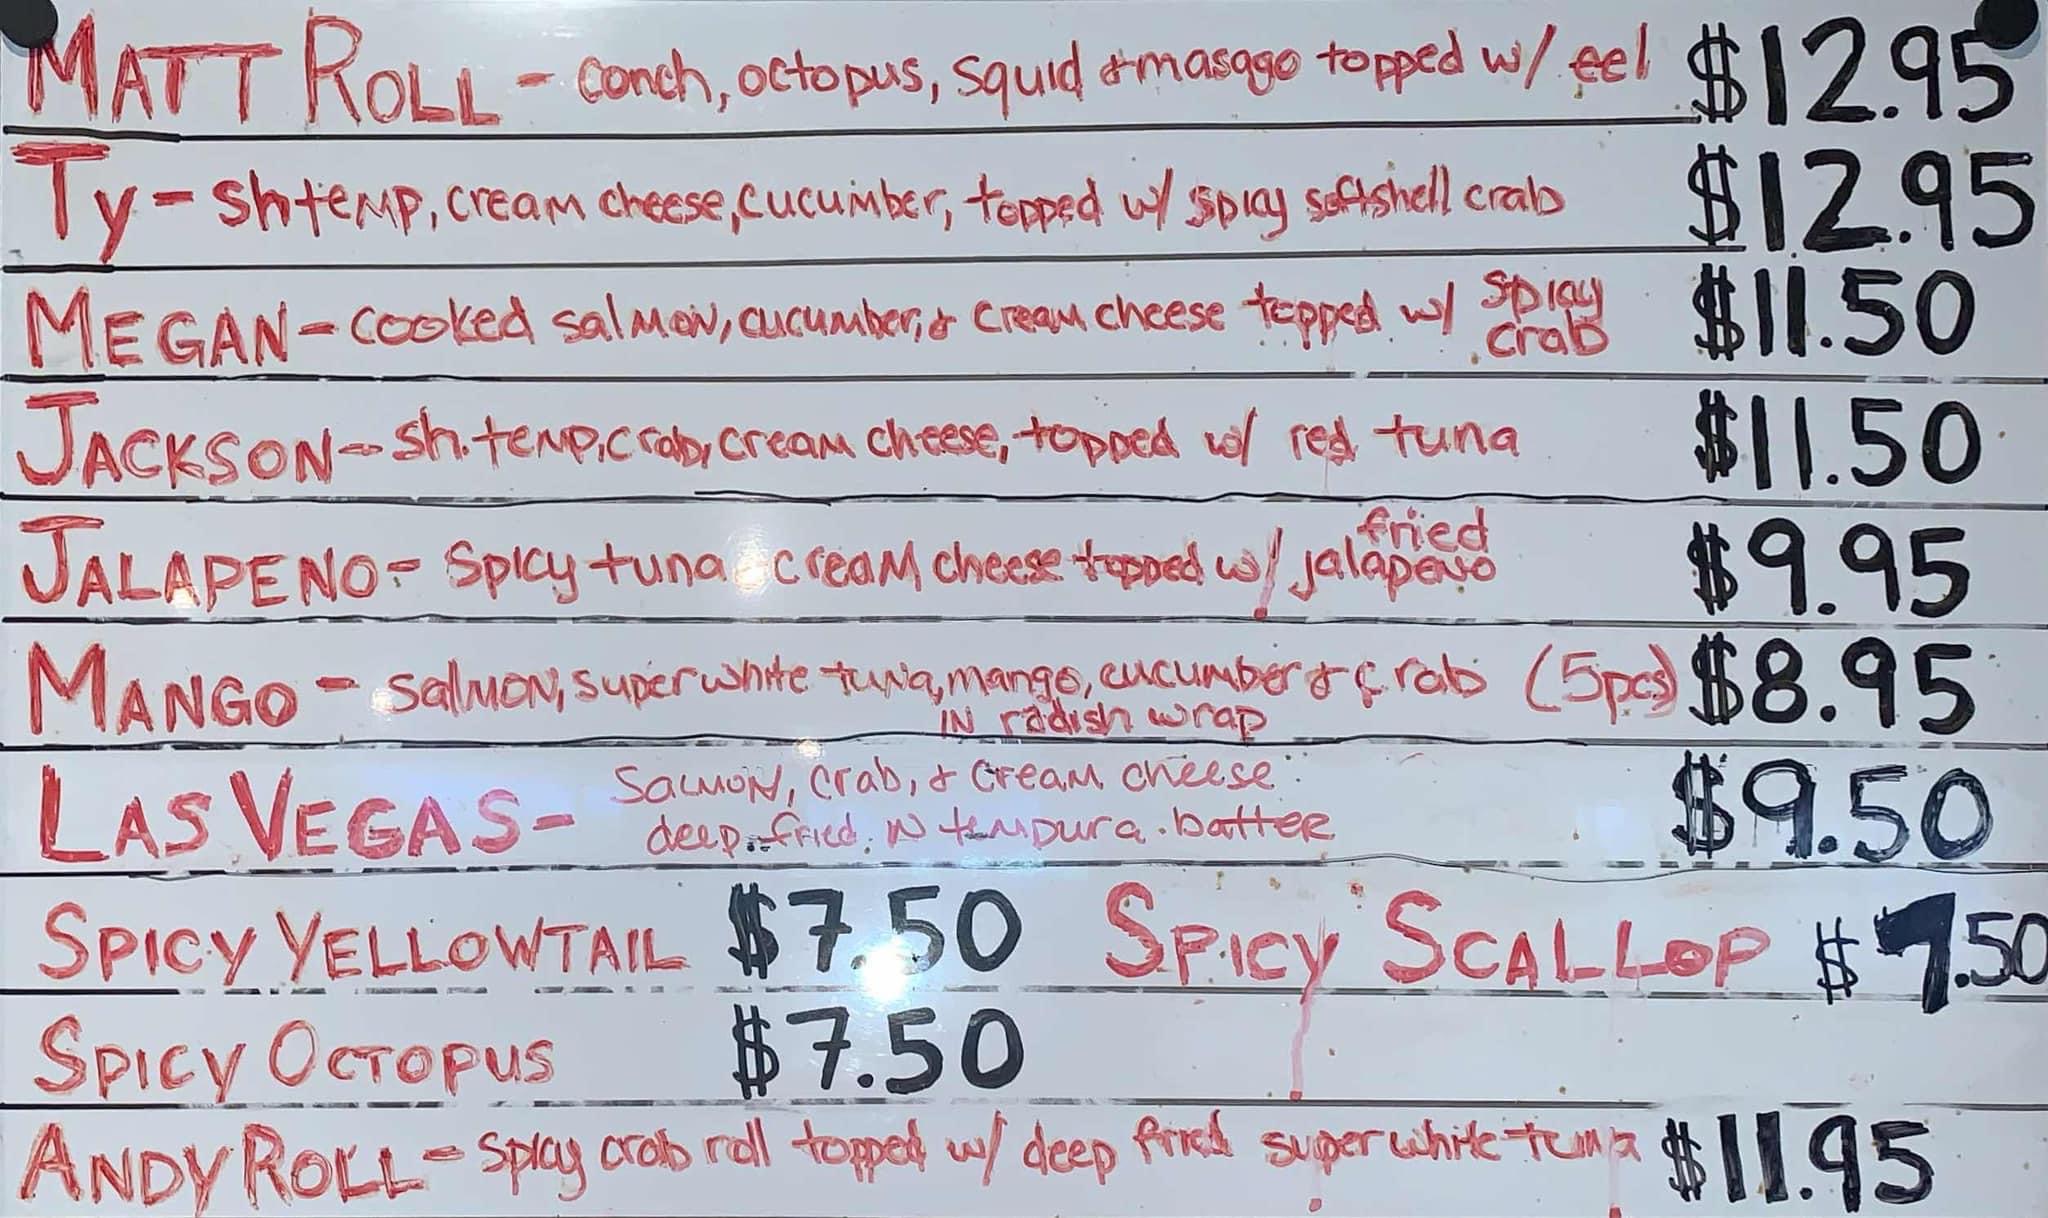 MATT ROLL - conch, octopus, squid & masago topped w/ eel $12.95
TY - sh temp, cream cheese, cucumber, topped w/ spicy softshell crab $12.95
MEGAN - cooked salmon, cucumber, & cream cheese topped w/ spicy crab $11.50
JACKSON - sh. temp, crab, cream cheese, topped w/ red tuna $11.50
JALAPENO - spicy tuna cream cheese topped w/ fried jalapeno $9.95
MANGO - salmon, super white tuna, mango, cucumber & crab (5pcs) $8.95
IN radish wrap
LAS VEGAS - salmon, crab, & cream cheese $9.50
deep fried IN tempura batter
SPICY YELLOWTAIL $7.50 SPICY SCALLOP $7.50
SPICY OCTOPUS $7.50
ANDY ROLL - spicy crab roll topped w/ deep fried super white tuna $11.95